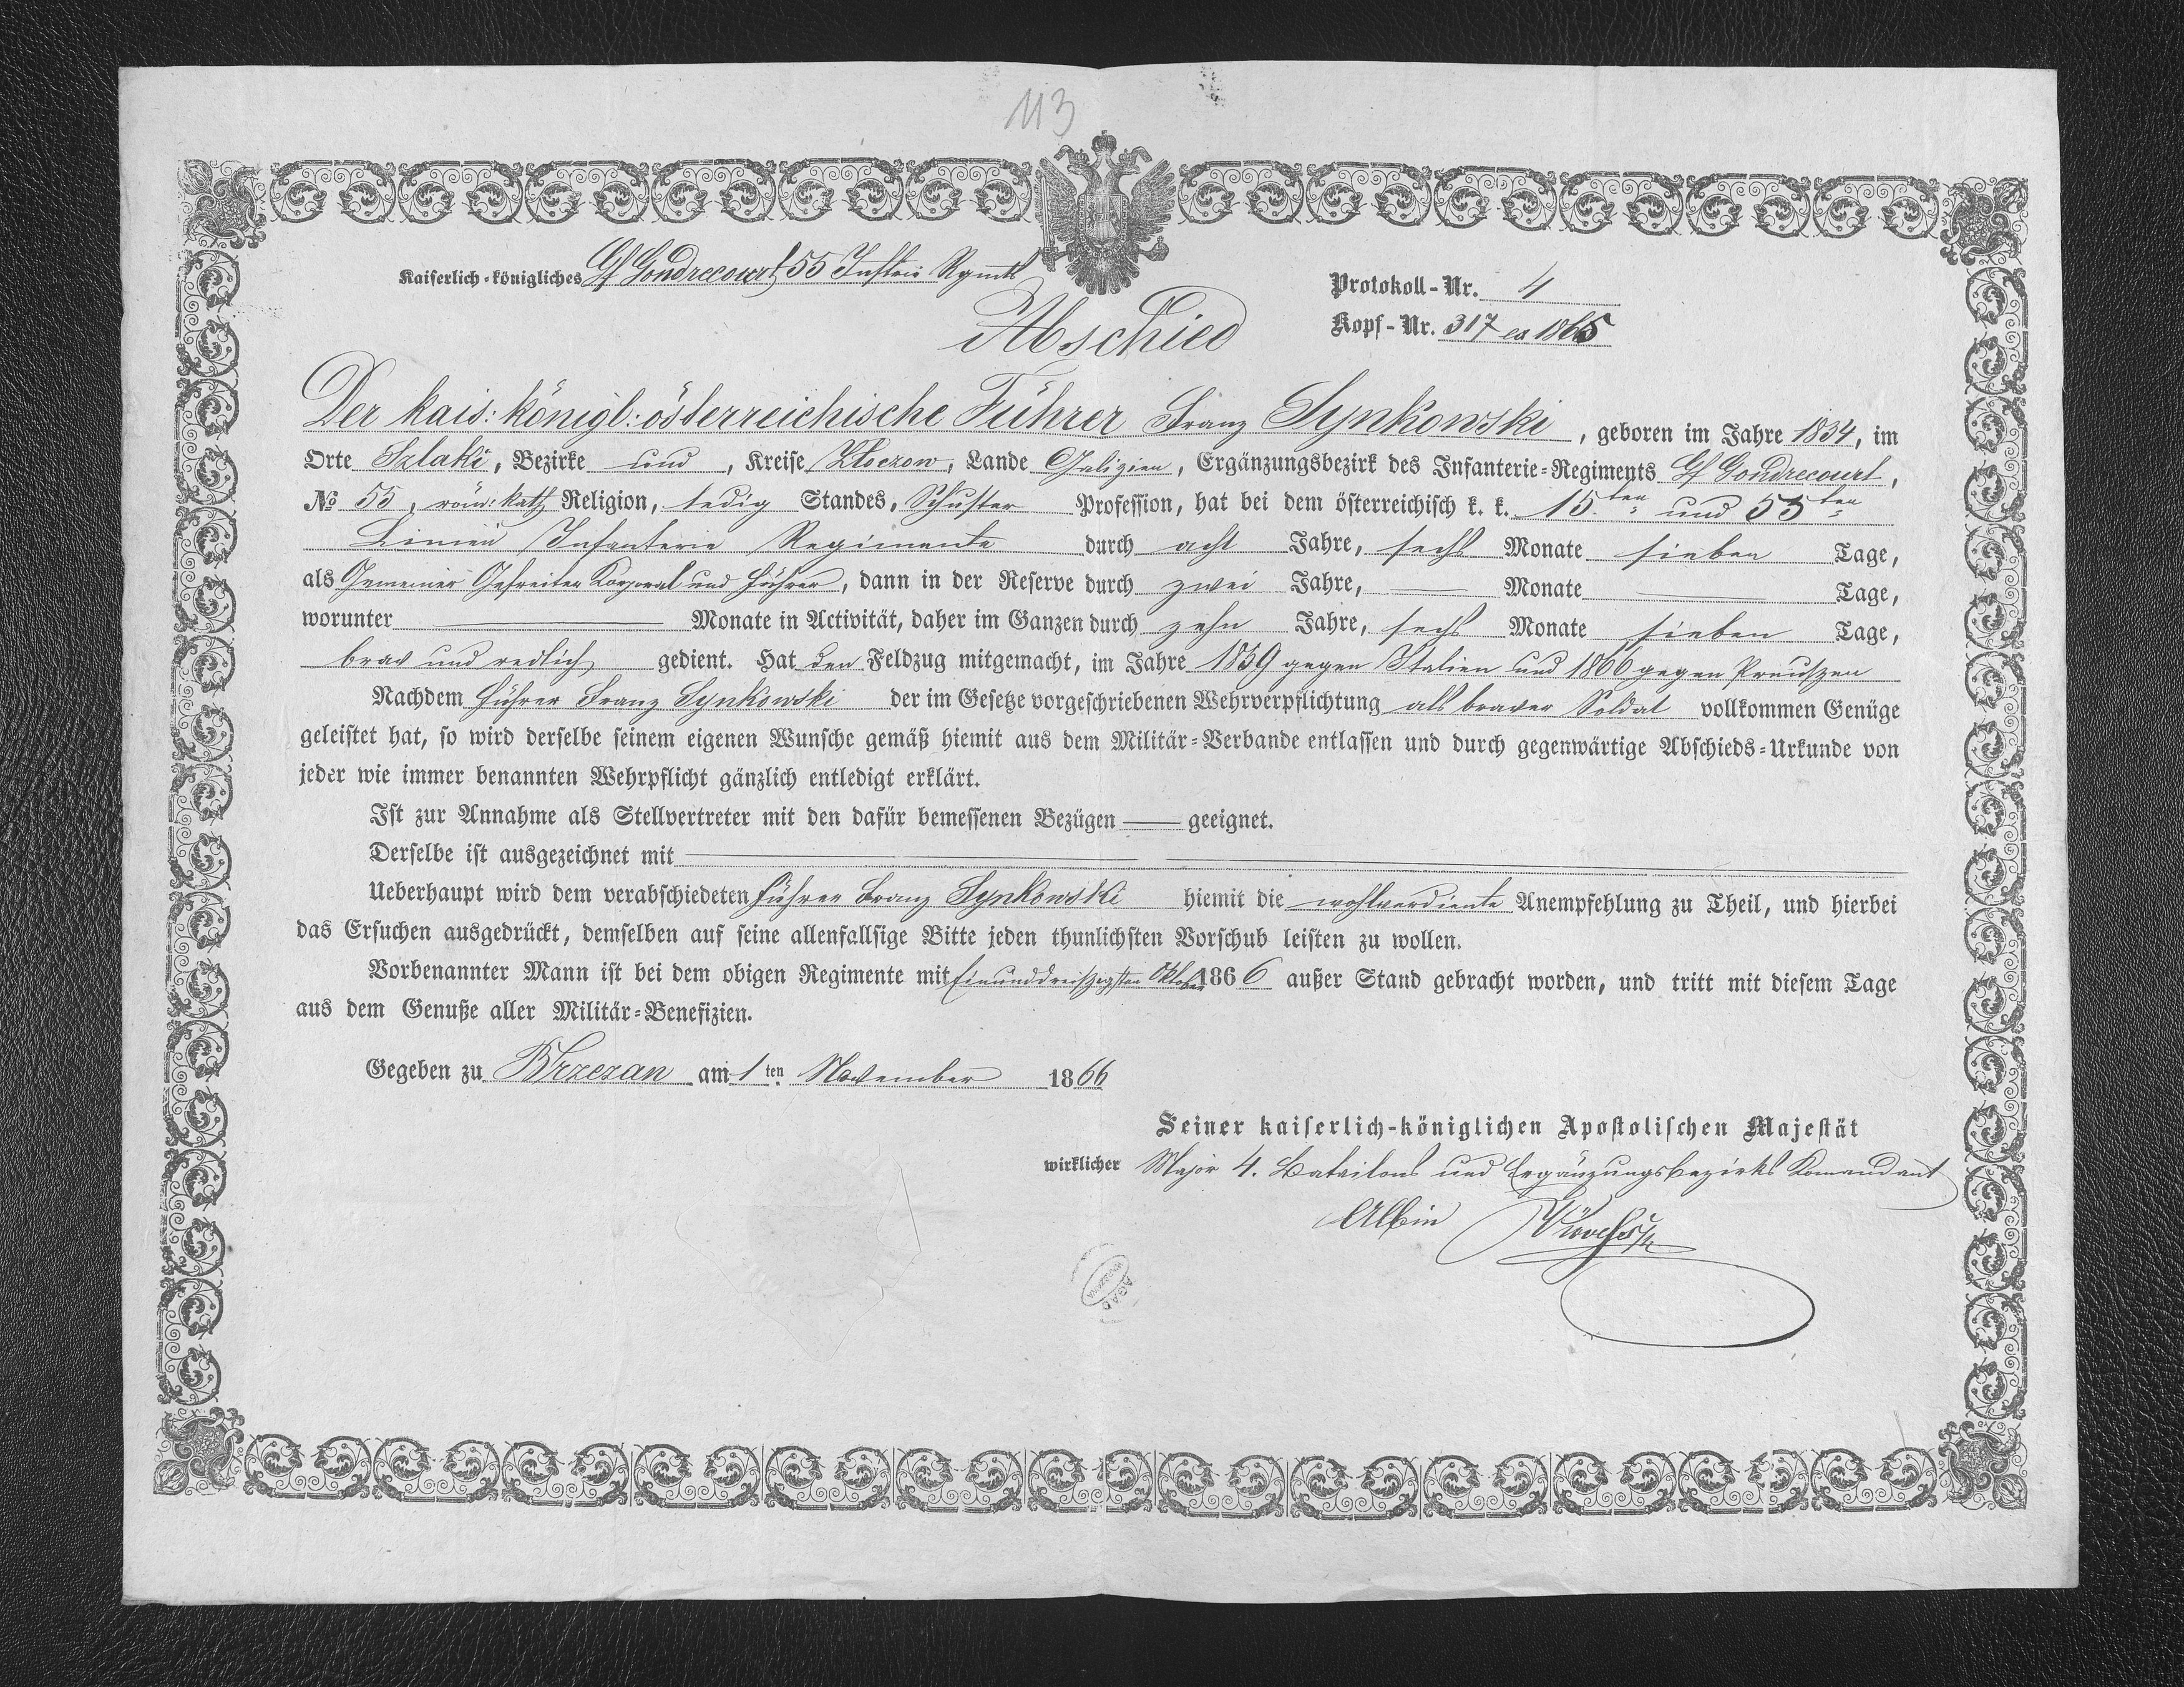 113
Kaiserlich-königliches Gf Gondrecourt 55 Inftrie Rgmts
Protokoll-Nr. 4
Abschied
Kopf-Nr. 317 ex 1865
Der kais: königl: österreichische Führer Franz Synkowski, geboren im Jahre 1834, im
Orte Szlaki, Bezirke und, Kreise Złoczow, Lande Galizien, Ergänzungsbezirk des Infanterie-Regiments Gf Gondrecourt,
№ 55, röm: kath Religion, ledig Standes, Schuster Profession, hat bei dem österreichisch k. k. 15ten und 55ten
Linien Infanterie Regimente durch acht Jahre, sechs Monate sieben Tage,
als Gemeiner Gefreiter Korporal und Führer, dann in der Reserve durch zwei Jahre, — Monate — Tage,
worunter — Monate in Activität, daher im Ganzen durch zehn Jahre, sechs Monate sieben Tage,
brav und redlich gedient. Hat den Feldzug mitgemacht, im Jahre 1859 gegen Italien und 1866 gegen Preußen
Nachdem Führer Franz Synkowski der im Gesetze vorgeschriebenen Wehrverpflichtung als braver Soldat vollkommen Genüge
geleistet hat, so wird derselbe seinem eigenen Wunsche gemäß hiemit aus dem Militär-Verbande entlassen und durch gegenwärtige Abschieds-Urkunde von
jeder wie immer benannten Wehrpflicht gänzlich entledigt erklärt.
Ist zur Annahme als Stellvertreter mit den dafür bemessenen Bezügen — geeignet.
Derselbe ist ausgezeichnet mit —
Ueberhaupt wird dem verabschiedeten Führer Franz Synkowski hiemit die wohlverdiente Anempfehlung zu Theil, und hierbei
das Ersuchen ausgedrückt, demselben auf seine allenfallsige Bitte jeden thunlichsten Vorschub leisten zu wollen.
Vorbenannter Mann ist bei dem obigen Regimente mit Einunddreißigsten Oktober 1866 außer Stand gebracht worden, und tritt mit diesem Tage
aus dem Genuße aller Militär-Benefizien.
Gegeben zu Brzezan am 1ten November 1866
Seiner kaiserlich-königlichen Apostolischen Majestät
wirklicher Major 4. Bataillons und Ergänzungsbezirks Komandant
Albin
AGAD
WARSZAWA